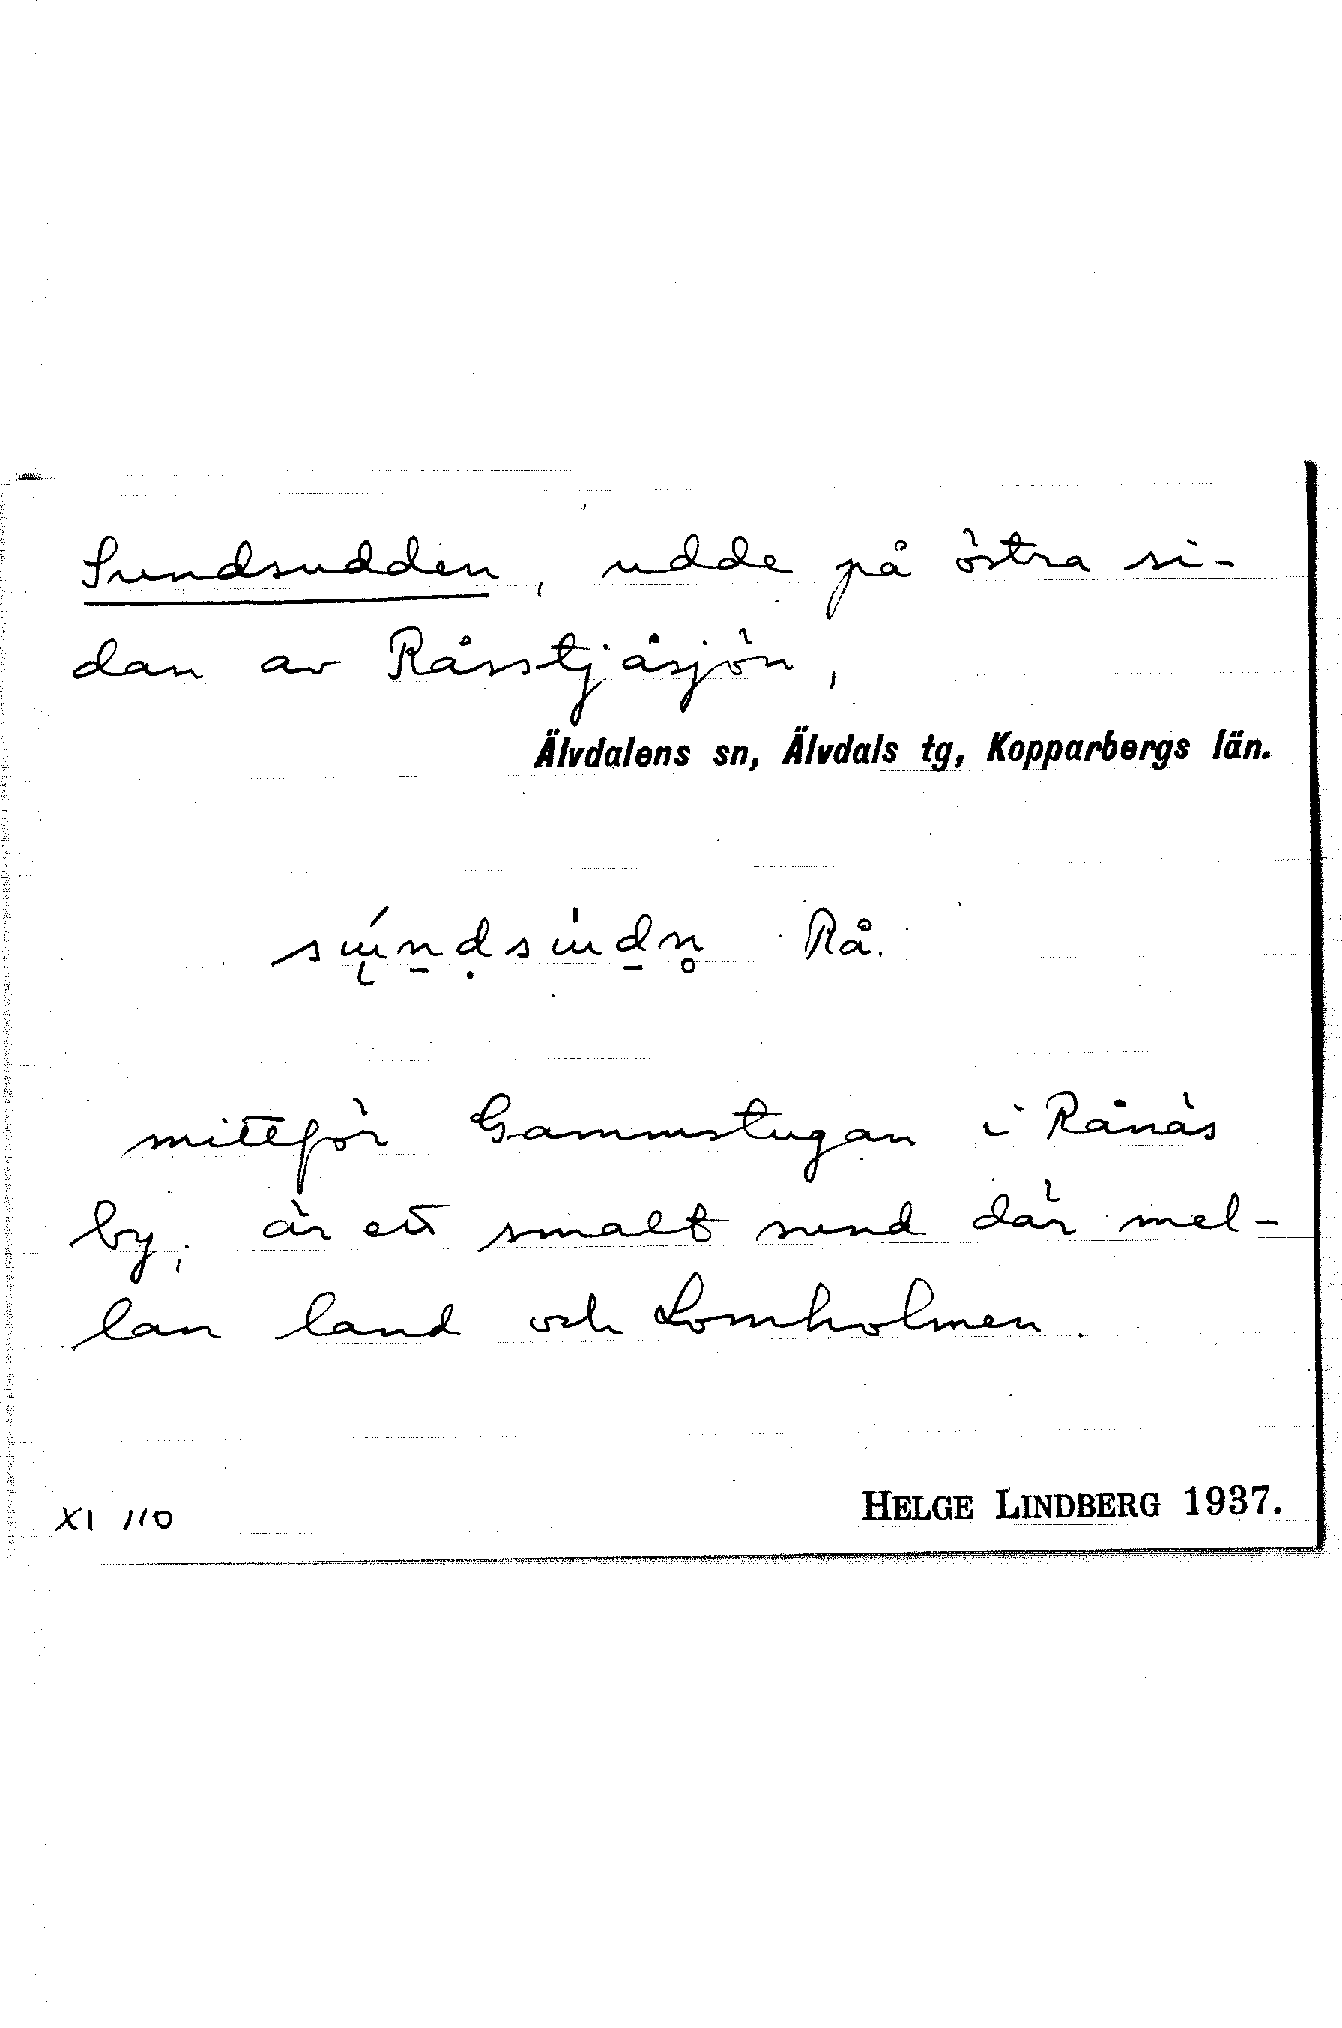 Sundsudden, udde på östra si-
dan av Råsstjåsjön,
Älvdalens sn, Älvdals tg, Kopparbergs län.
Rå.
mittför Gammstugan i Rånäs
by, är ett smalt sund där mel-
lan land och Lomholmen.
XI 110
HELGE LINDBERG 1937.